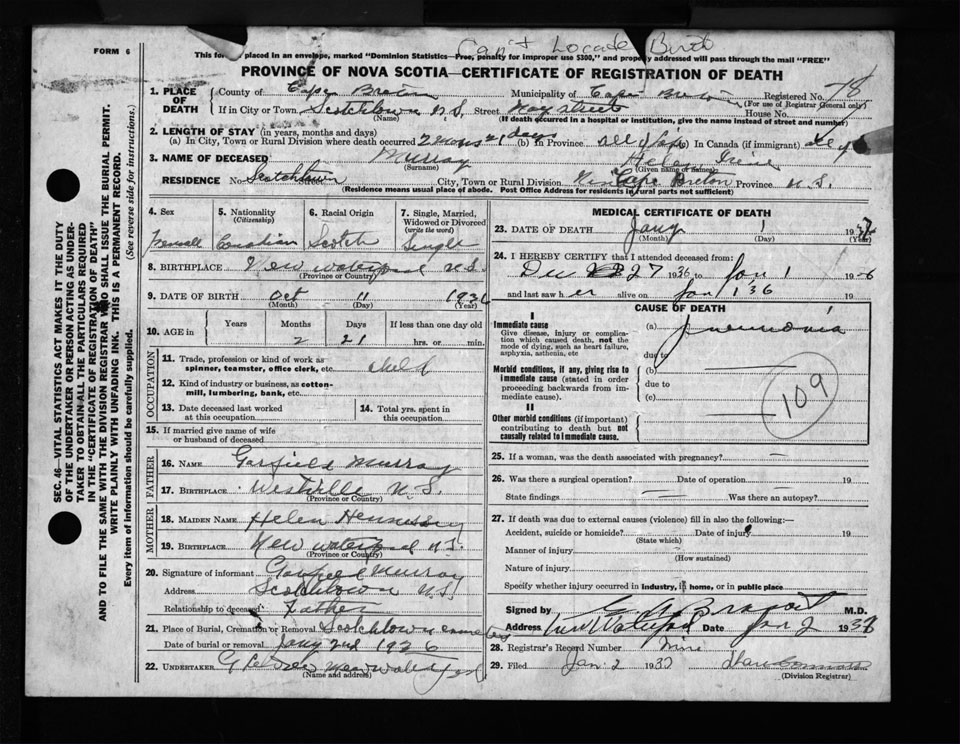 Can't Locate Birth
FORM 6
This form placed in an envelope, marked "Dominion Statistics—Free, penalty for improper use $300," and properly addressed will pass through the mail "FREE"
PROVINCE OF NOVA SCOTIA—CERTIFICATE OF REGISTRATION OF DEATH
1. PLACE OF DEATH
County of Cape Breton Municipality of Cape Breton Registered No. 78
(For use of Registrar General only)
If in City or Town Scotchtown N.S. Street May street House No.
(Name) (If death occurred in a hospital or institution, give the name instead of street and number)
2. LENGTH OF STAY (in years, months and days)
(a) In City, Town or Rural Division where death occurred 2 mons 21 days (b) In Province all life In Canada (if immigrant)
3. NAME OF DECEASED Murray Helen Irene
(Surname) (Given name or names)
RESIDENCE No. Scotchtown Street City, Town or Rural Division Cape Breton Province N.S.
(Residence means usual place of abode. Post Office Address for residents in rural parts not sufficient)
4. Sex
Femall
5. Nationality
(Citizenship)
Canadian
6. Racial Origin
Scotch
7. Single, Married, Widowed or Divorced
(write the word)
Single
8. BIRTHPLACE New waterford N.S.
(Province or Country)
9. DATE OF BIRTH Oct 11 1936
(Month) (Day) (Year)
10. AGE in Years Months Days If less than one day old
2 21 hrs. or min.
OCCUPATION
11. Trade, profession or kind of work as spinner, teamster, office clerk, etc. child
12. Kind of industry or business, as cotton-mill, lumbering, bank, etc.
13. Date deceased last worked at this occupation
14. Total yrs. spent in this occupation
15. If married give name of wife or husband of deceased
FATHER
16. NAME Garfield Murray
17. BIRTHPLACE Westville N.S.
(Province or Country)
MOTHER
18. MAIDEN NAME Helen Hennessey
19. BIRTHPLACE New waterford N.S.
(Province or Country)
20. Signature of informant Garfield Murray
Address Scotchtown N.S.
Relationship to deceased Father
21. Place of Burial, Cremation or Removal Scotchtown cemetery
Date of burial or removal Jany 2nd 1936
22. UNDERTAKER New Waterford
(Name and address)
MEDICAL CERTIFICATE OF DEATH
23. DATE OF DEATH Jany 1 1937
(Month) (Day) (Year)
24. I HEREBY CERTIFY that I attended deceased from:
Dec 27 1936 to Jan 1 1936
and last saw her alive on Jan 1 '36 19
CAUSE OF DEATH
I
Immediate cause
Give disease, injury or complication which caused death, not the mode of dying, such as heart failure, asphyxia, asthenia, etc
(a) Pneumonia
due to
Morbid conditions, if any, giving rise to immediate cause (stated in order proceeding backwards from immediate cause).
(b)
due to
(c)
109
II
Other morbid conditions (if important) contributing to death but not causally related to immediate cause.
25. If a woman, was the death associated with pregnancy?
26. Was there a surgical operation? Date of operation 19
State findings Was there an autopsy?
27. If death was due to external causes (violence) fill in also the following:—
Accident, suicide or homicide? Date of injury 19
(State which)
Manner of injury
(How sustained)
Nature of injury
Specify whether injury occurred in industry, in home, or in public place
Signed by M.D.
Address New Waterford Date Jan 2 1937
28. Registrar's Record Number Nine
29. Filed Jan. 2 1937
(Division Registrar)
SEC. 46—VITAL STATISTICS ACT MAKES IT THE DUTY
OF THE UNDERTAKER OR PERSON ACTING AS UNDER-
TAKER TO OBTAIN ALL THE PARTICULARS REQUIRED
IN THE "CERTIFICATE OF REGISTRATION OF DEATH"
AND TO FILE THE SAME WITH THE DIVISION REGISTRAR WHO SHALL ISSUE THE BURIAL PERMIT.
WRITE PLAINLY WITH UNFADING INK. THIS IS A PERMANENT RECORD.
Every item of information should be carefully supplied. (See reverse side for instructions.)